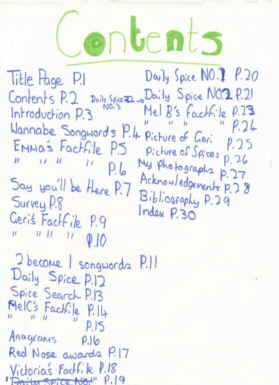 Contents
Title Page P.1
Contents P.2
Introduction P.3
Wannabe Songwords P.4
Emma's Factfile P.5
" " " " P.6
Say you'll be there P.7
Survey P.8
Geri's Factfile P.9
" " " " P.10
2 become 1 songwords P.11
Daily Spice P.12
Spice Search P.13
MelC's Factfile P.14
" " " P.15
Anagrams P.16
Red Nose awards P.17
Victoria's Factfile P.18
"Daily Spice No!" P.19
Daily Spice NO.1 P.20
Daily Spice NO.2 P.21
Mel B's Factfile P.23
" " " P.24
Picture of Geri P.25
Picture of Spices P.26
My Photographs P.27
Acknowledgements P.28
Bibliography P.29
Index P.30